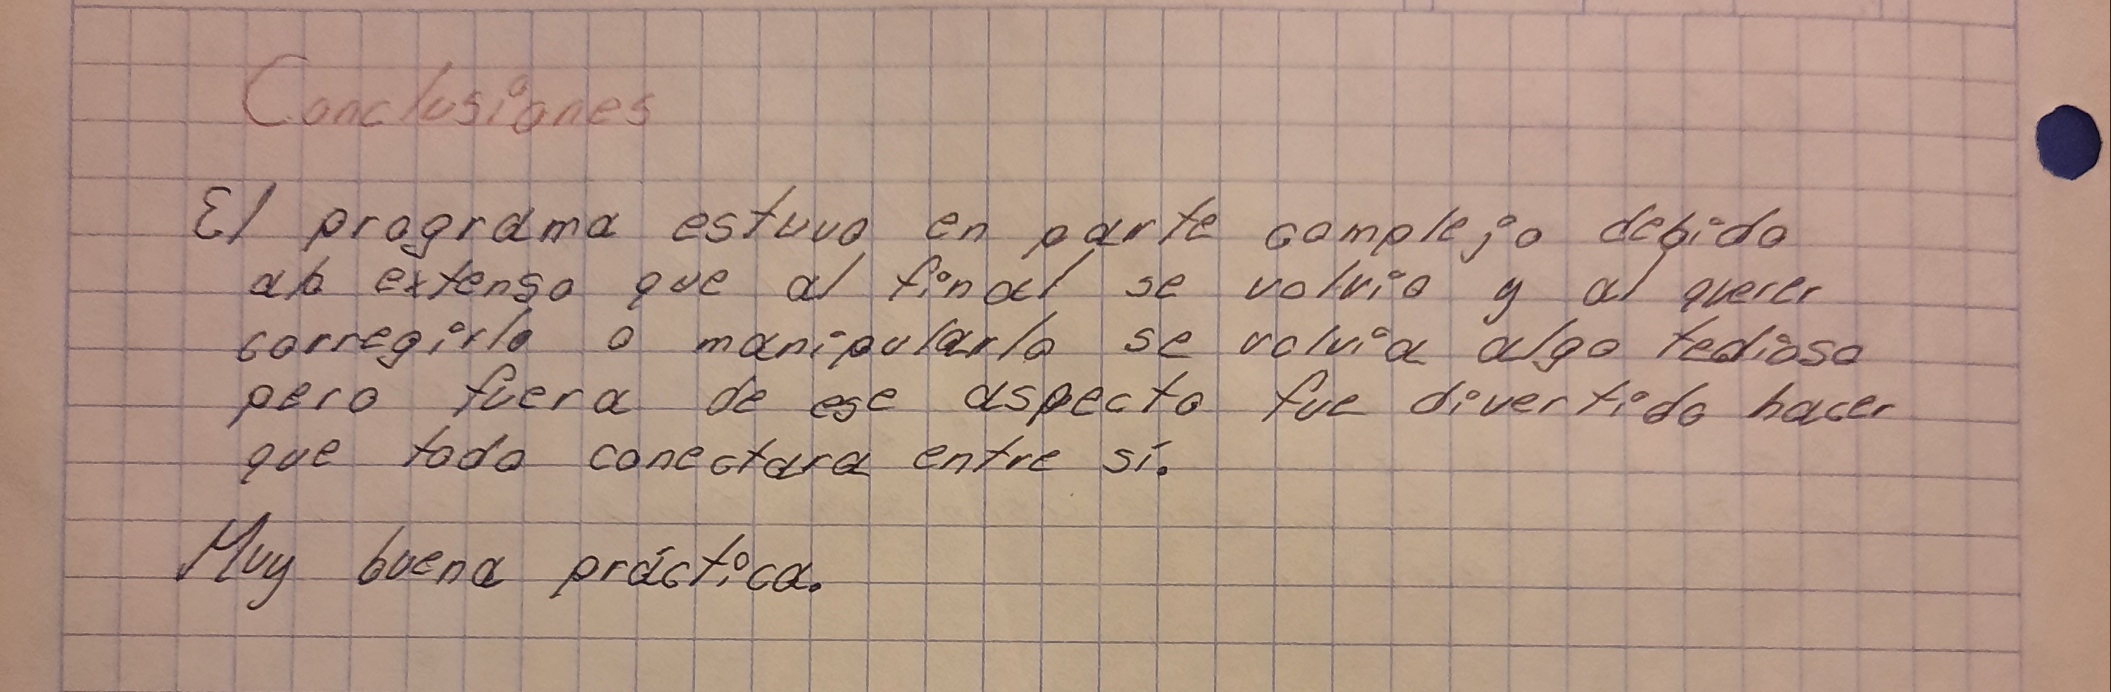 Conclusiones
El programa estuvo en parte complejo debido
a lo extenso que al final se volvio y al querer
corregirlo o manipularlo se volvia algo tedioso
pero fuera de ese aspecto fue divertido hacer
que todo conectara entre sí.
Muy buena práctica.